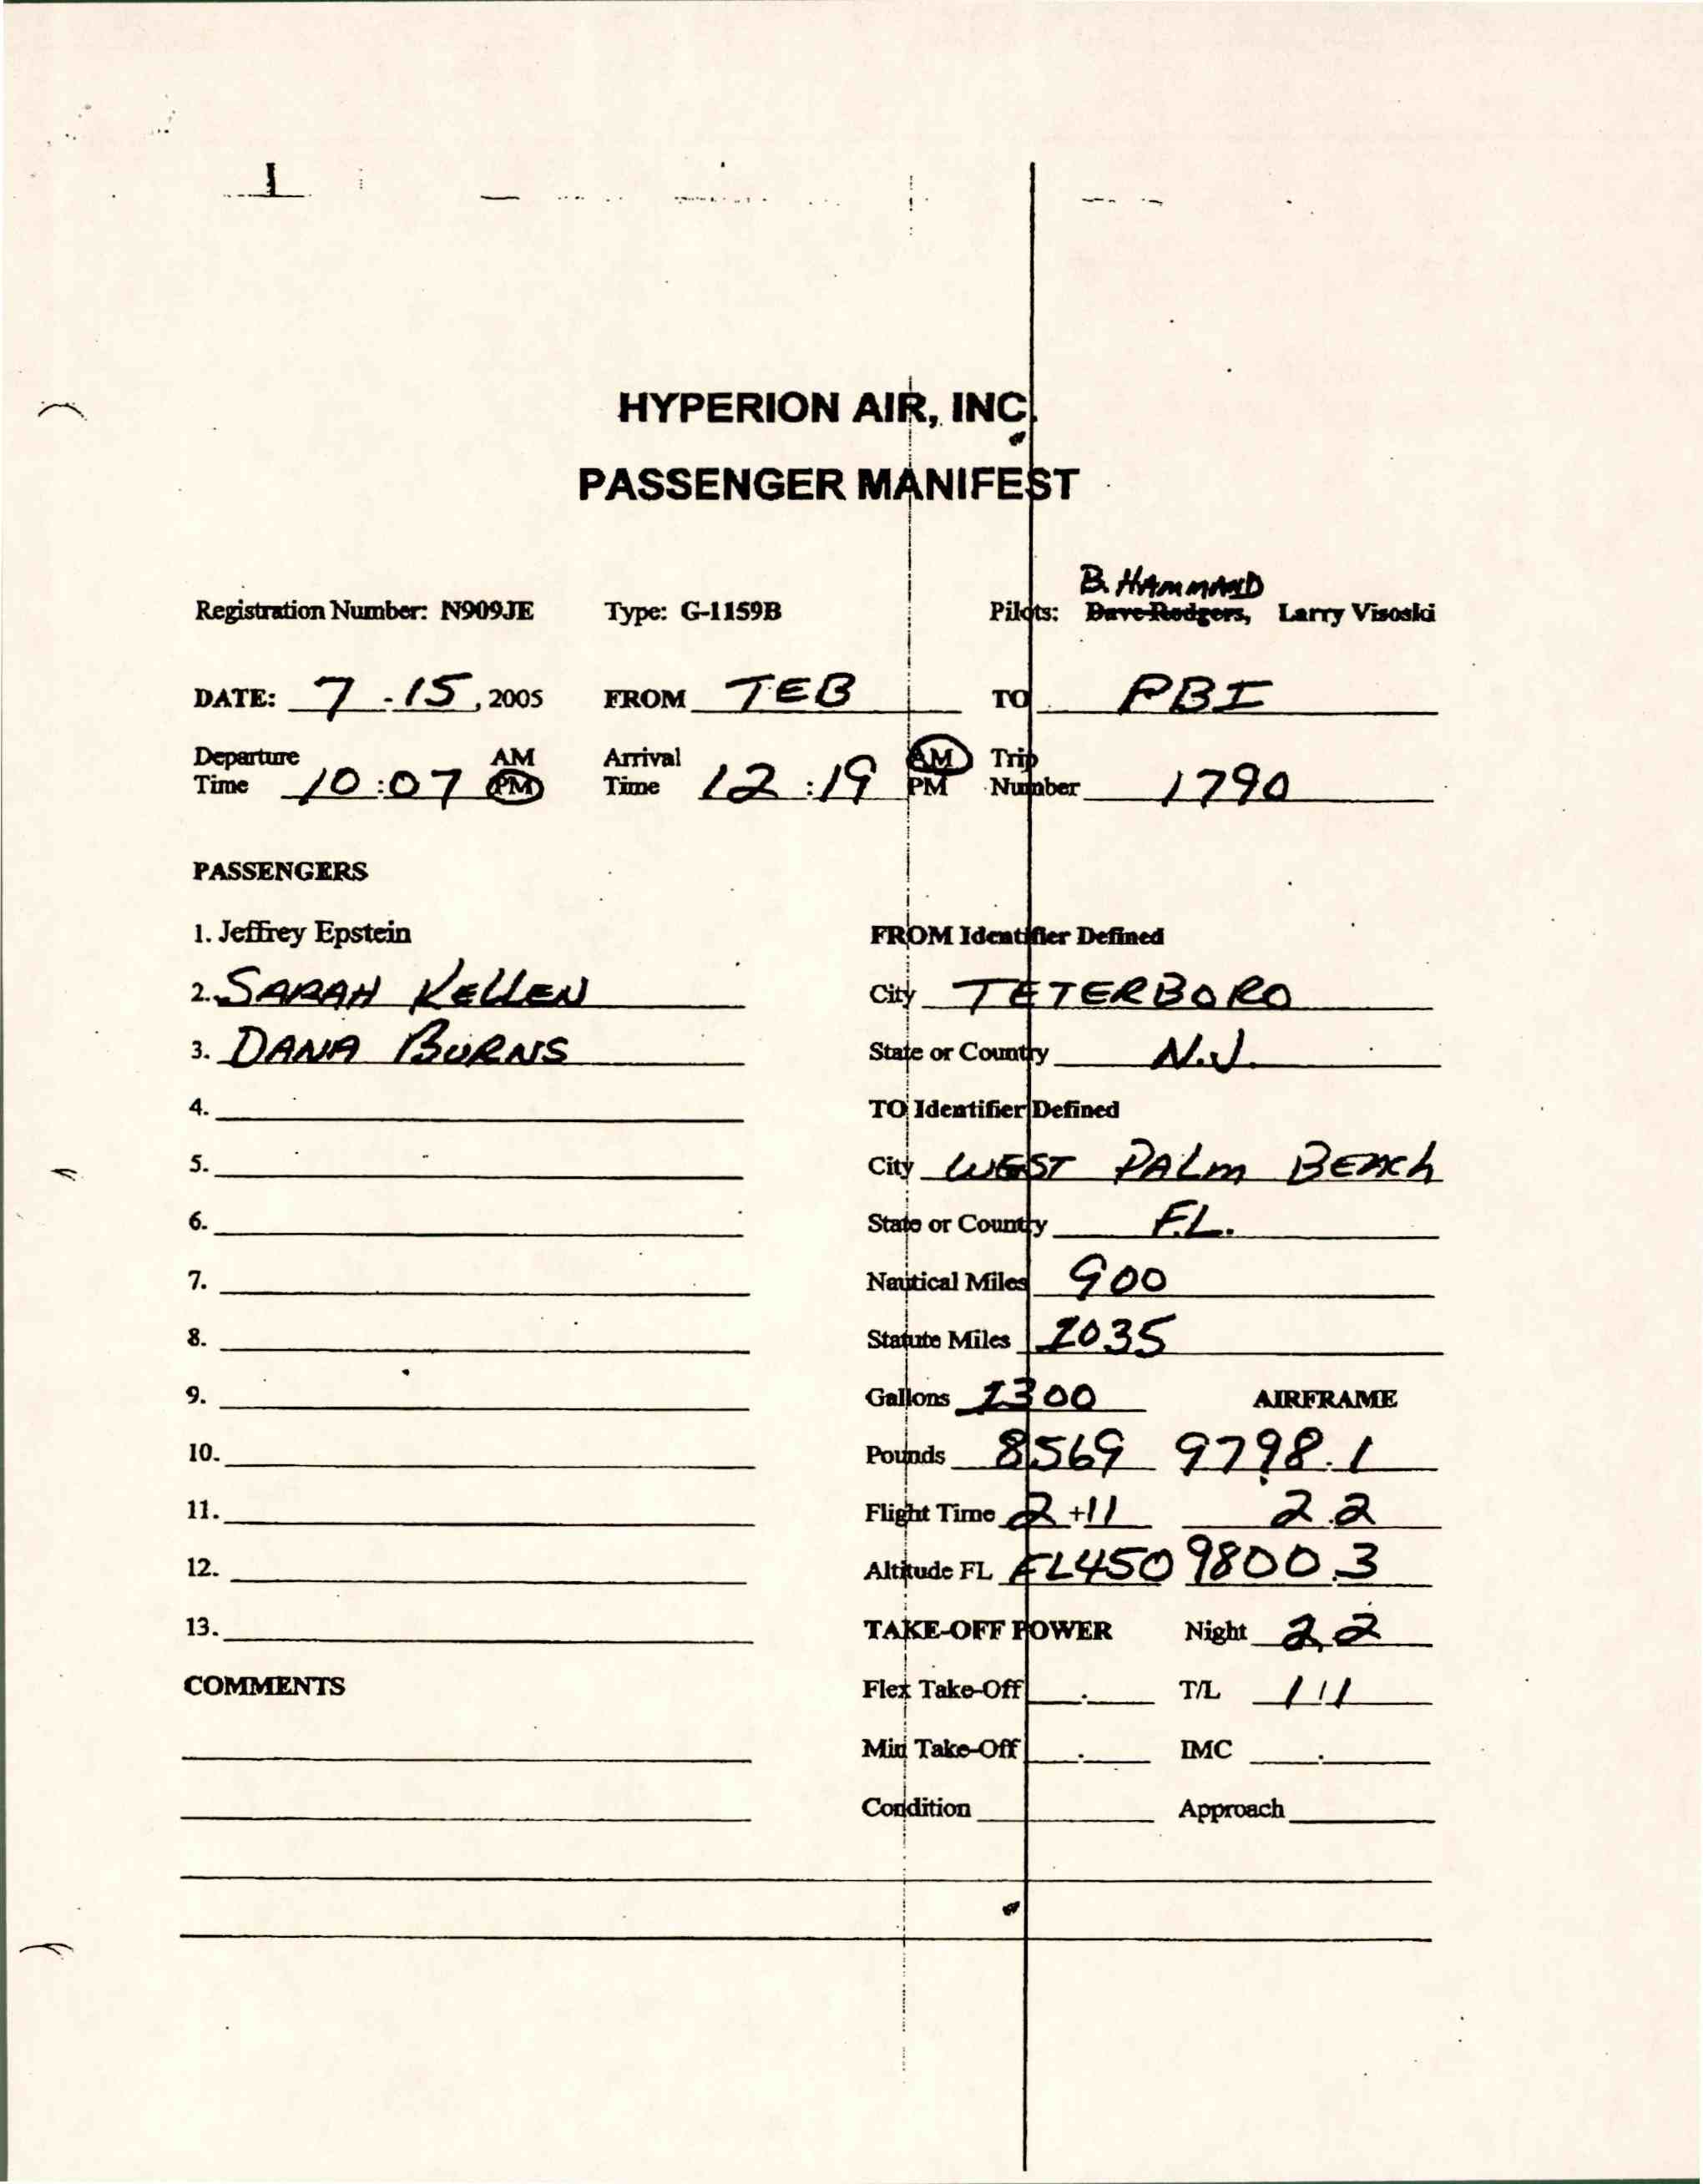 HYPERION AIR, INC.
PASSENGER MANIFEST
B. HAMMAND
Registration Number: N909JE Type: G-1159B Pilots: Dave Rodgers, Larry Visoski
DATE: 7-15, 2005 FROM TEB TO PBI
Departure AM Arrival AM Trip
Time 10:07 PM Time 12:19 PM Number 1790
PASSENGERS
1. Jeffrey Epstein FROM Identifier Defined
2. SARAH KELLEN City TETERBORO
3. DANA BURNS State or Country N.J.
4. TO Identifier Defined
5. City WEST PALM BEACH
6. State or Country F.L.
7. Nautical Miles 900
8. Statute Miles 1035
9. Gallons 1300 AIRFRAME
10. Pounds 8569 9798.1
11. Flight Time 2+11 2.2
12. Altitude FL FL450 9800.3
13. TAKE-OFF POWER Night 2.2
COMMENTS Flex Take-Off T/L 1/1
Min Take-Off IMC
Condition Approach